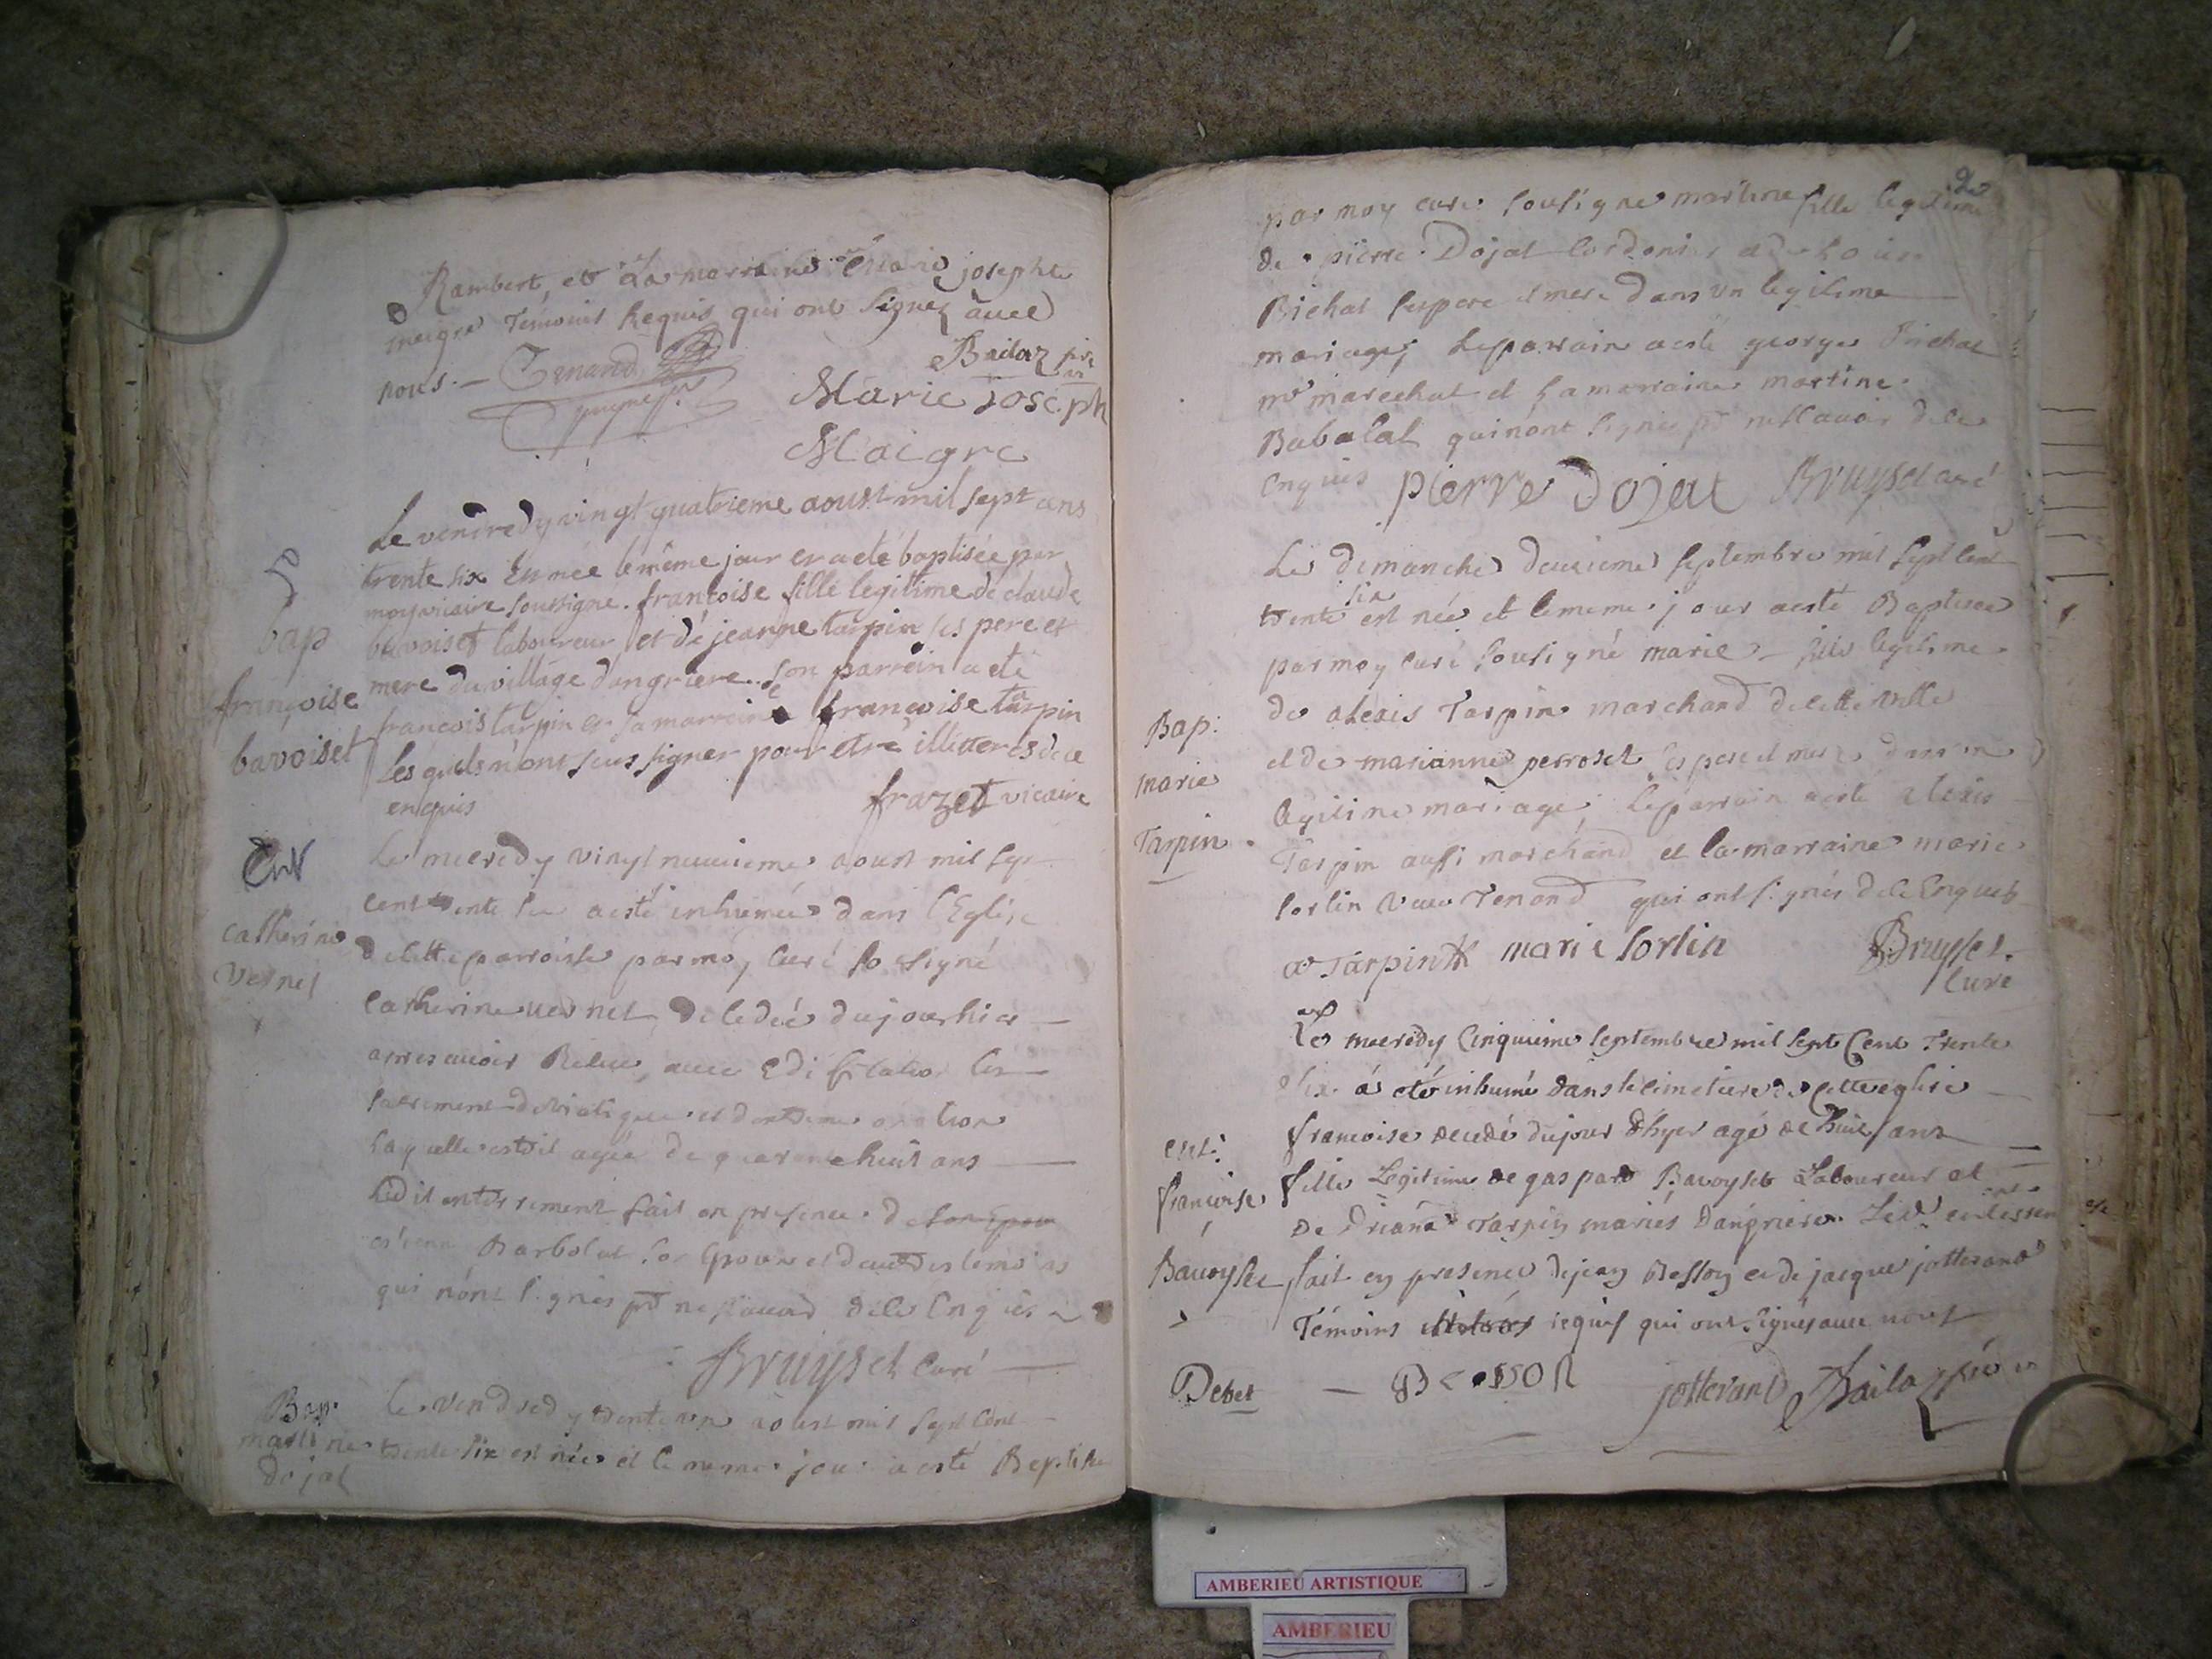 Rambert, et La marraine Marie josephte
maigre Temoins Requis qui ont Signez avec
nous. — Tenand
Bailaz
Marie Joseph
Maigre
Le vendredy vingt quatrieme aoust mil sept ans
trente six Est née le même jour et a eté baptisée par
moy vicaire soussigne. francoise fille legitime de claude
bavoiset laboureur et de jeanne tarpin ses pere et
mere du village dangriere. Son parrein a eté
francois tarpin et sa marreine françoise tarpin
Lesquels n'ont sceus signer pour etre illitterés de ce
enquis frazet vicaire
bap
françoise
bavoiset
Le mecredy vingt neuvieme aoust mil sept
cent trente six a esté inhumée dans l'Eglise
de cette parroisse par moy curé soSigné
catherine vernet decedée du jour hier —
apres avoir Recue, avec Edification les —
sacrement de viatique et d'extreme onction
laquelle estoit agée de quarente huit ans —
Ledit enterrement fait en presence de son Epou
etienne Barbolat son Epoux et de temoins
qui n'ont signés pr ne scavoir de ce Enquis
Bruyset curé —
Ent
catherine
vernet
Le vendredy trente un aoust mil sept cent
trente six est née et le meme jour a esté Baptisée
Bap.
martine
dojat
par moy curé sousigné martine fille legitime
de pierre Dojat cordonier
Bichat ses pere et mere dans un legitime —
mariage, Le parrain a esté george Bichat
me marechal et La marraine martine
Babalat qui n'ont signés pr ne scavoir de ce
Enquis pierre Dojat Bruyset curé
Le dimanche deuxieme septembre mil sept cent
six
trente est née et le meme jour a esté Baptisée
par moy curé sousigné marie — fille legitime
de alexis Tarpin marchand de cette ville
et de marianne perroset ses pere et mere dans un
legitime mariage; Le parrain a esté alexis
Tarpin aussi marchand et la marraine marie
sorlin veuve Tenand qui ont signés de ce Enquis
a Tarpin marie sorlin Bruyset
curé
Bap:
marie
Tarpin
Le mecredy cinquieme septembre mil sept Cent Trente
six a eté inhumé dans le cimetiere de cette eglise —
francoise decedé du jour d'hyer agé de huit ans —
fille Legitime de gaspard Bavoyset Laboureur et
de Driane Tarpin mariés d'angriere. Led. enterrem
fait en presence de jean Besson et de jacque jotterand
Témoins requis qui ont signés avec nous
— Besson jotterand Bailaz
ent:
francoise
Bavoyset
Debet
AMBERIEU ARTISTIQUE
AMBERIEU